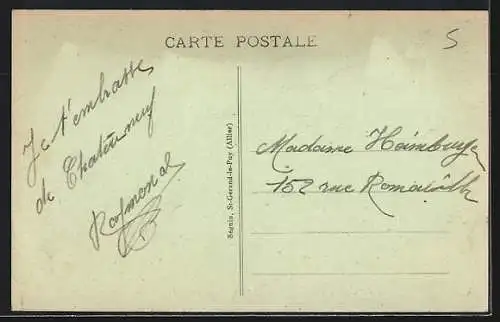 CARTE POSTALE
5
Je t'embrasse
de Chateauneuf
Raymond
Séguin, St-Gerand-le-Puy (Allier)
Madame
152 rue